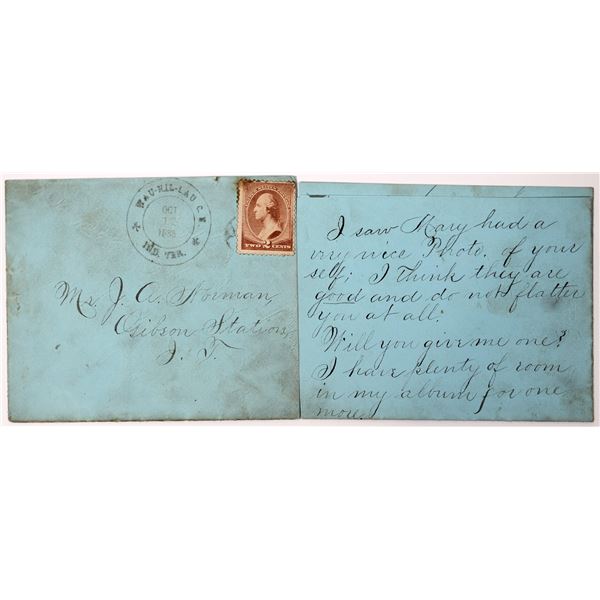 WAU-HIL-LAU C.N.
OCT
1885
IND. TER.
UNITED STATES POSTAGE
2
TWO CENTS
Mr. J. A. Norman,
Gibson Station,
I. T.
I saw Mary had a
very nice Photo. of your
self; I think they are
good and do not flatter
you at all.
Will you give me one?
I have plenty of room
in my album for one
more.